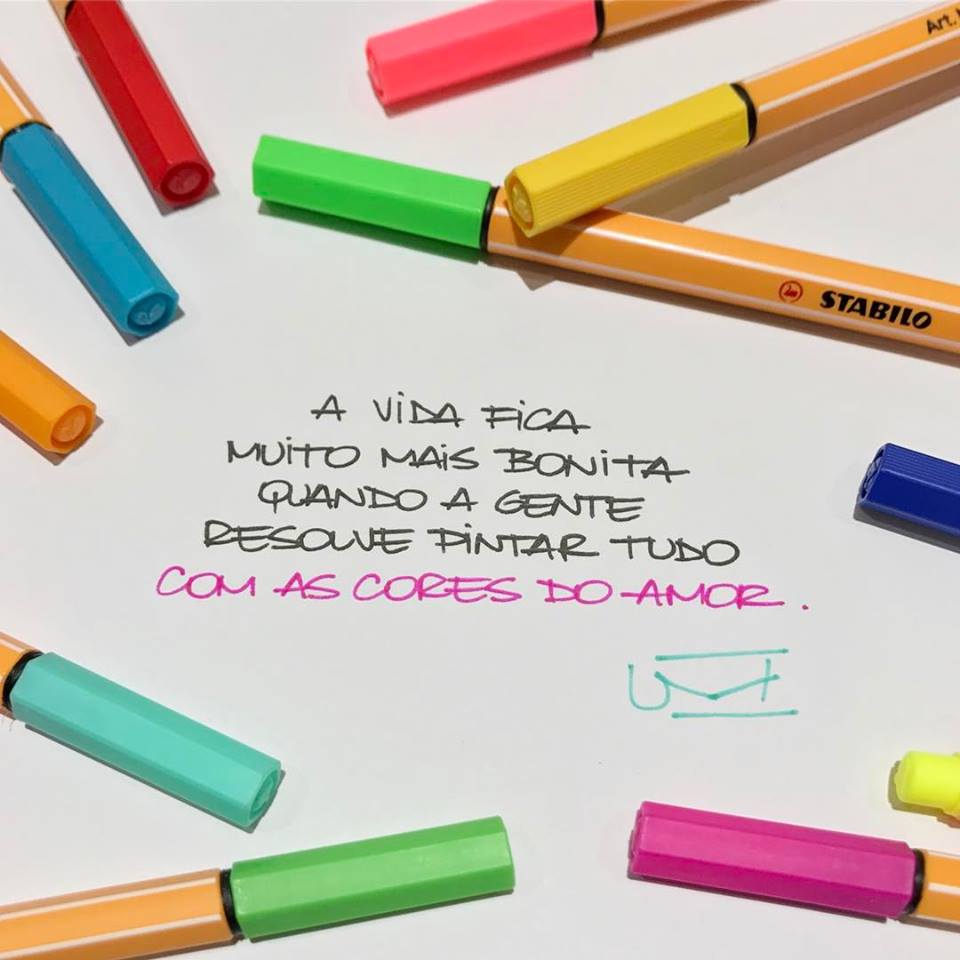 Art.
STABILO
A ViDA FiCA
MUiTO MAiS BONiTA
QUANDO A GENTE
RESOLVE PiNTAR TUDO
COM AS CORES DO AMOR.